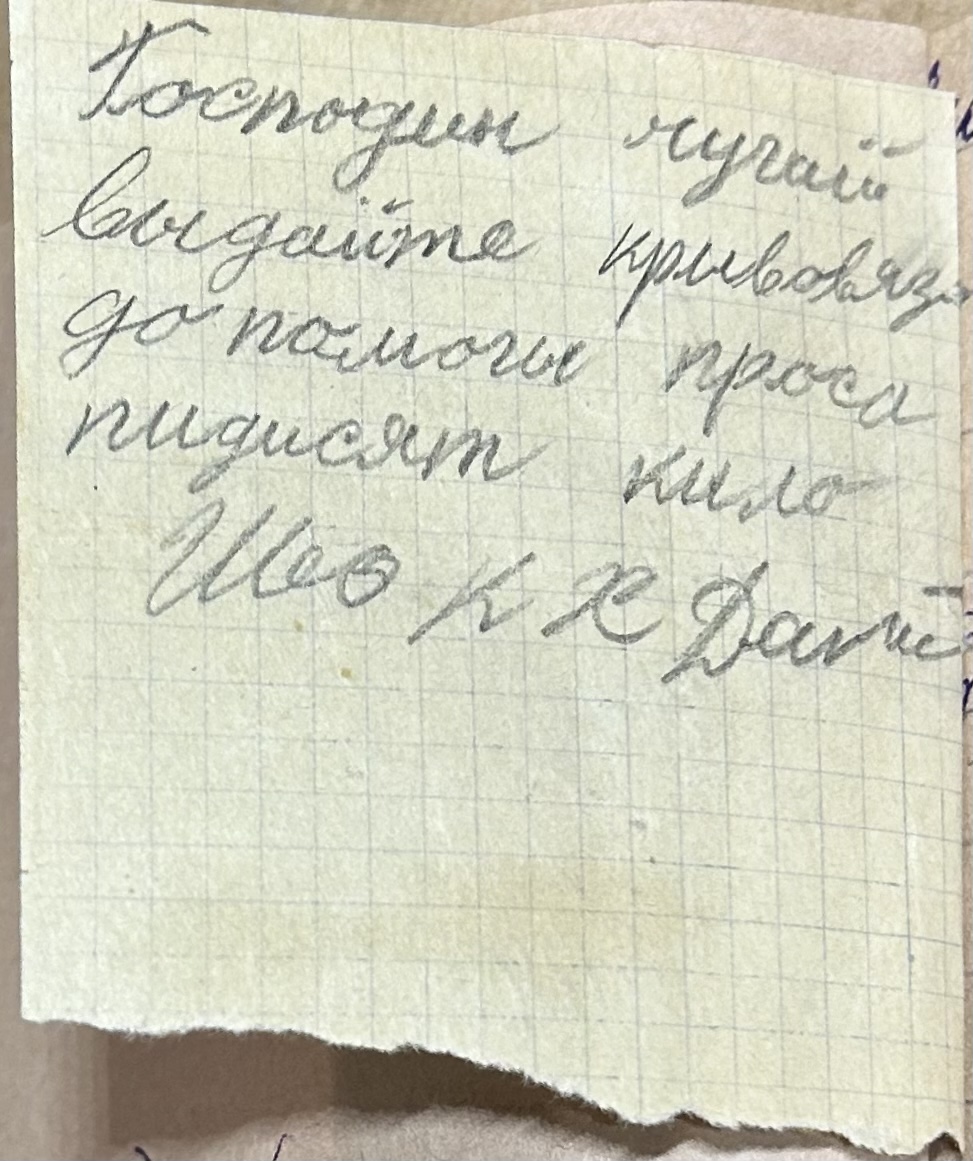 Господин чугай
выдайте крывовяз
до помогы проса
пидисят кило